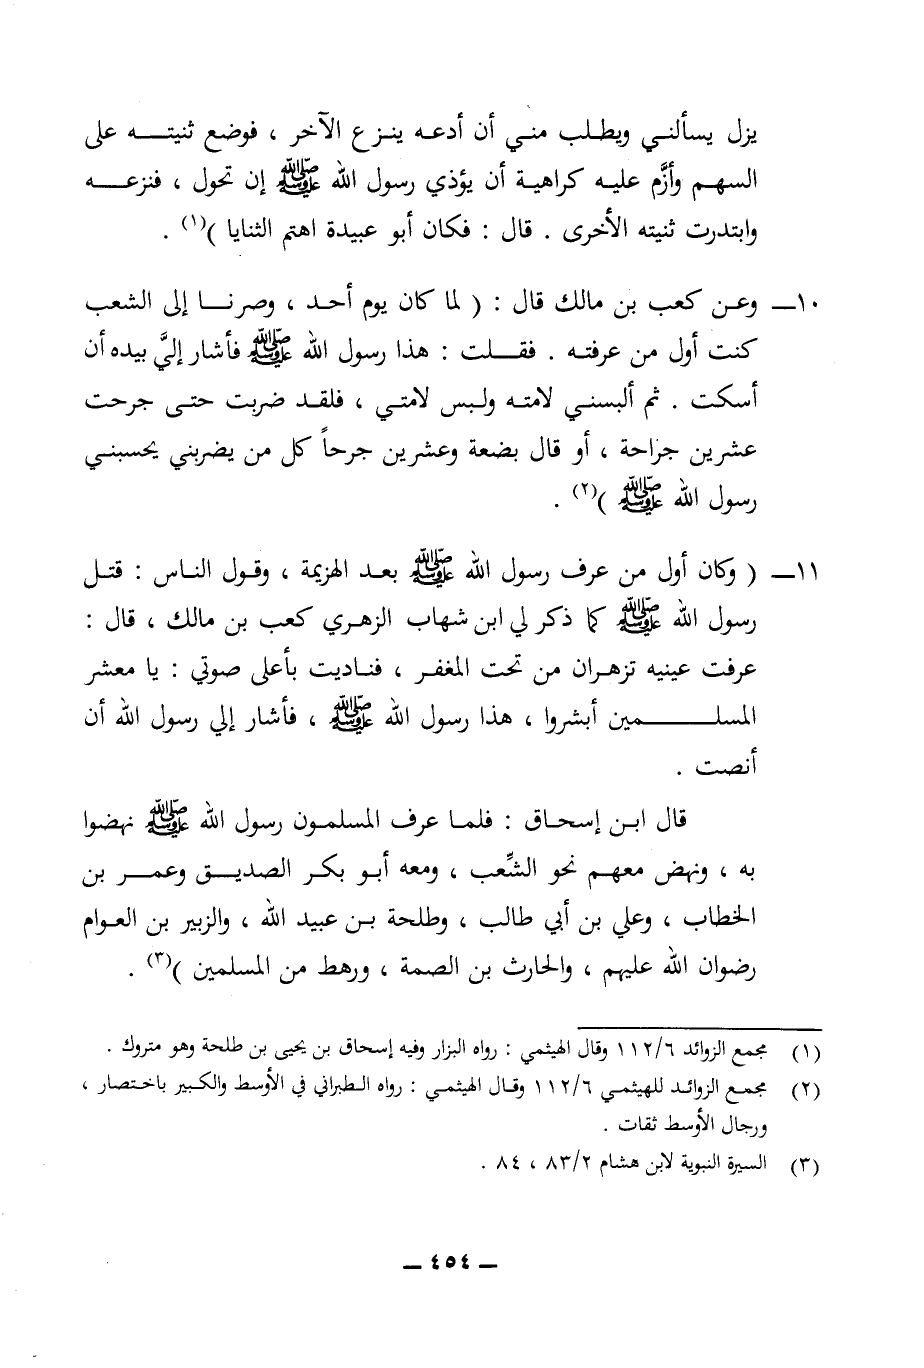 يزل يسألني ويطلب مني أن أدعه ينزع الآخر ، فوضع ثنيته على
السهم وأزَّم عليه كراهية أن يؤذي رسول الله ﷺ إن تحول ، فنزعه
وابتدرت ثنيته الأخرى . قال : فكان أبو عبيدة اهتم الثنايا )(١) .
١٠ـ وعن كعب بن مالك قال : ( لما كان يوم أحد ، وصرنا إلى الشعب
كنت أول من عرفته . فقلت : هذا رسول الله ﷺ فأشار إليَّ بيده أن
أسكت . ثم ألبسني لامته ولبس لامتي ، فلقد ضربت حتى جرحت
عشرين جراحة ، أو قال بضعة وعشرين جرحاً كل من يضربني يحسبني
رسول الله ﷺ )(٢) .
١١ـ ( وكان أول من عرف رسول الله ﷺ بعد الهزيمة ، وقول الناس : قتل
رسول الله ﷺ كما ذكر لي ابن شهاب الزهري كعب بن مالك ، قال :
عرفت عينيه تزهران من تحت المغفر ، فناديت بأعلى صوتي : يا معشر
المسلمين أبشروا ، هذا رسول الله ﷺ ، فأشار إلي رسول الله أن
أنصت .
قال ابن إسحاق : فلما عرف المسلمون رسول الله ﷺ نهضوا
به ، ونهض معهم نحو الشِّعب ، ومعه أبو بكر الصديق وعمر بن
الخطاب ، وعلي بن أبي طالب ، وطلحة بن عبيد الله ، والزبير بن العوام
رضوان الله عليهم ، والحارث بن الصمة ، ورهط من المسلمين )(٣) .
(١) مجمع الزوائد ١١٢/٦ وقال الهيثمي : رواه البزار وفيه إسحاق بن يحيى بن طلحة وهو متروك .
(٢) مجمع الزوائد للهيثمي ١١٢/٦ وقال الهيثمي : رواه الطبراني في الأوسط والكبير باختصار ،
ورجال الأوسط ثقات .
(٣) السيرة النبوية لابن هشام ٨٣/٢ ، ٨٤ .
ـ ٤٥٤ ـ